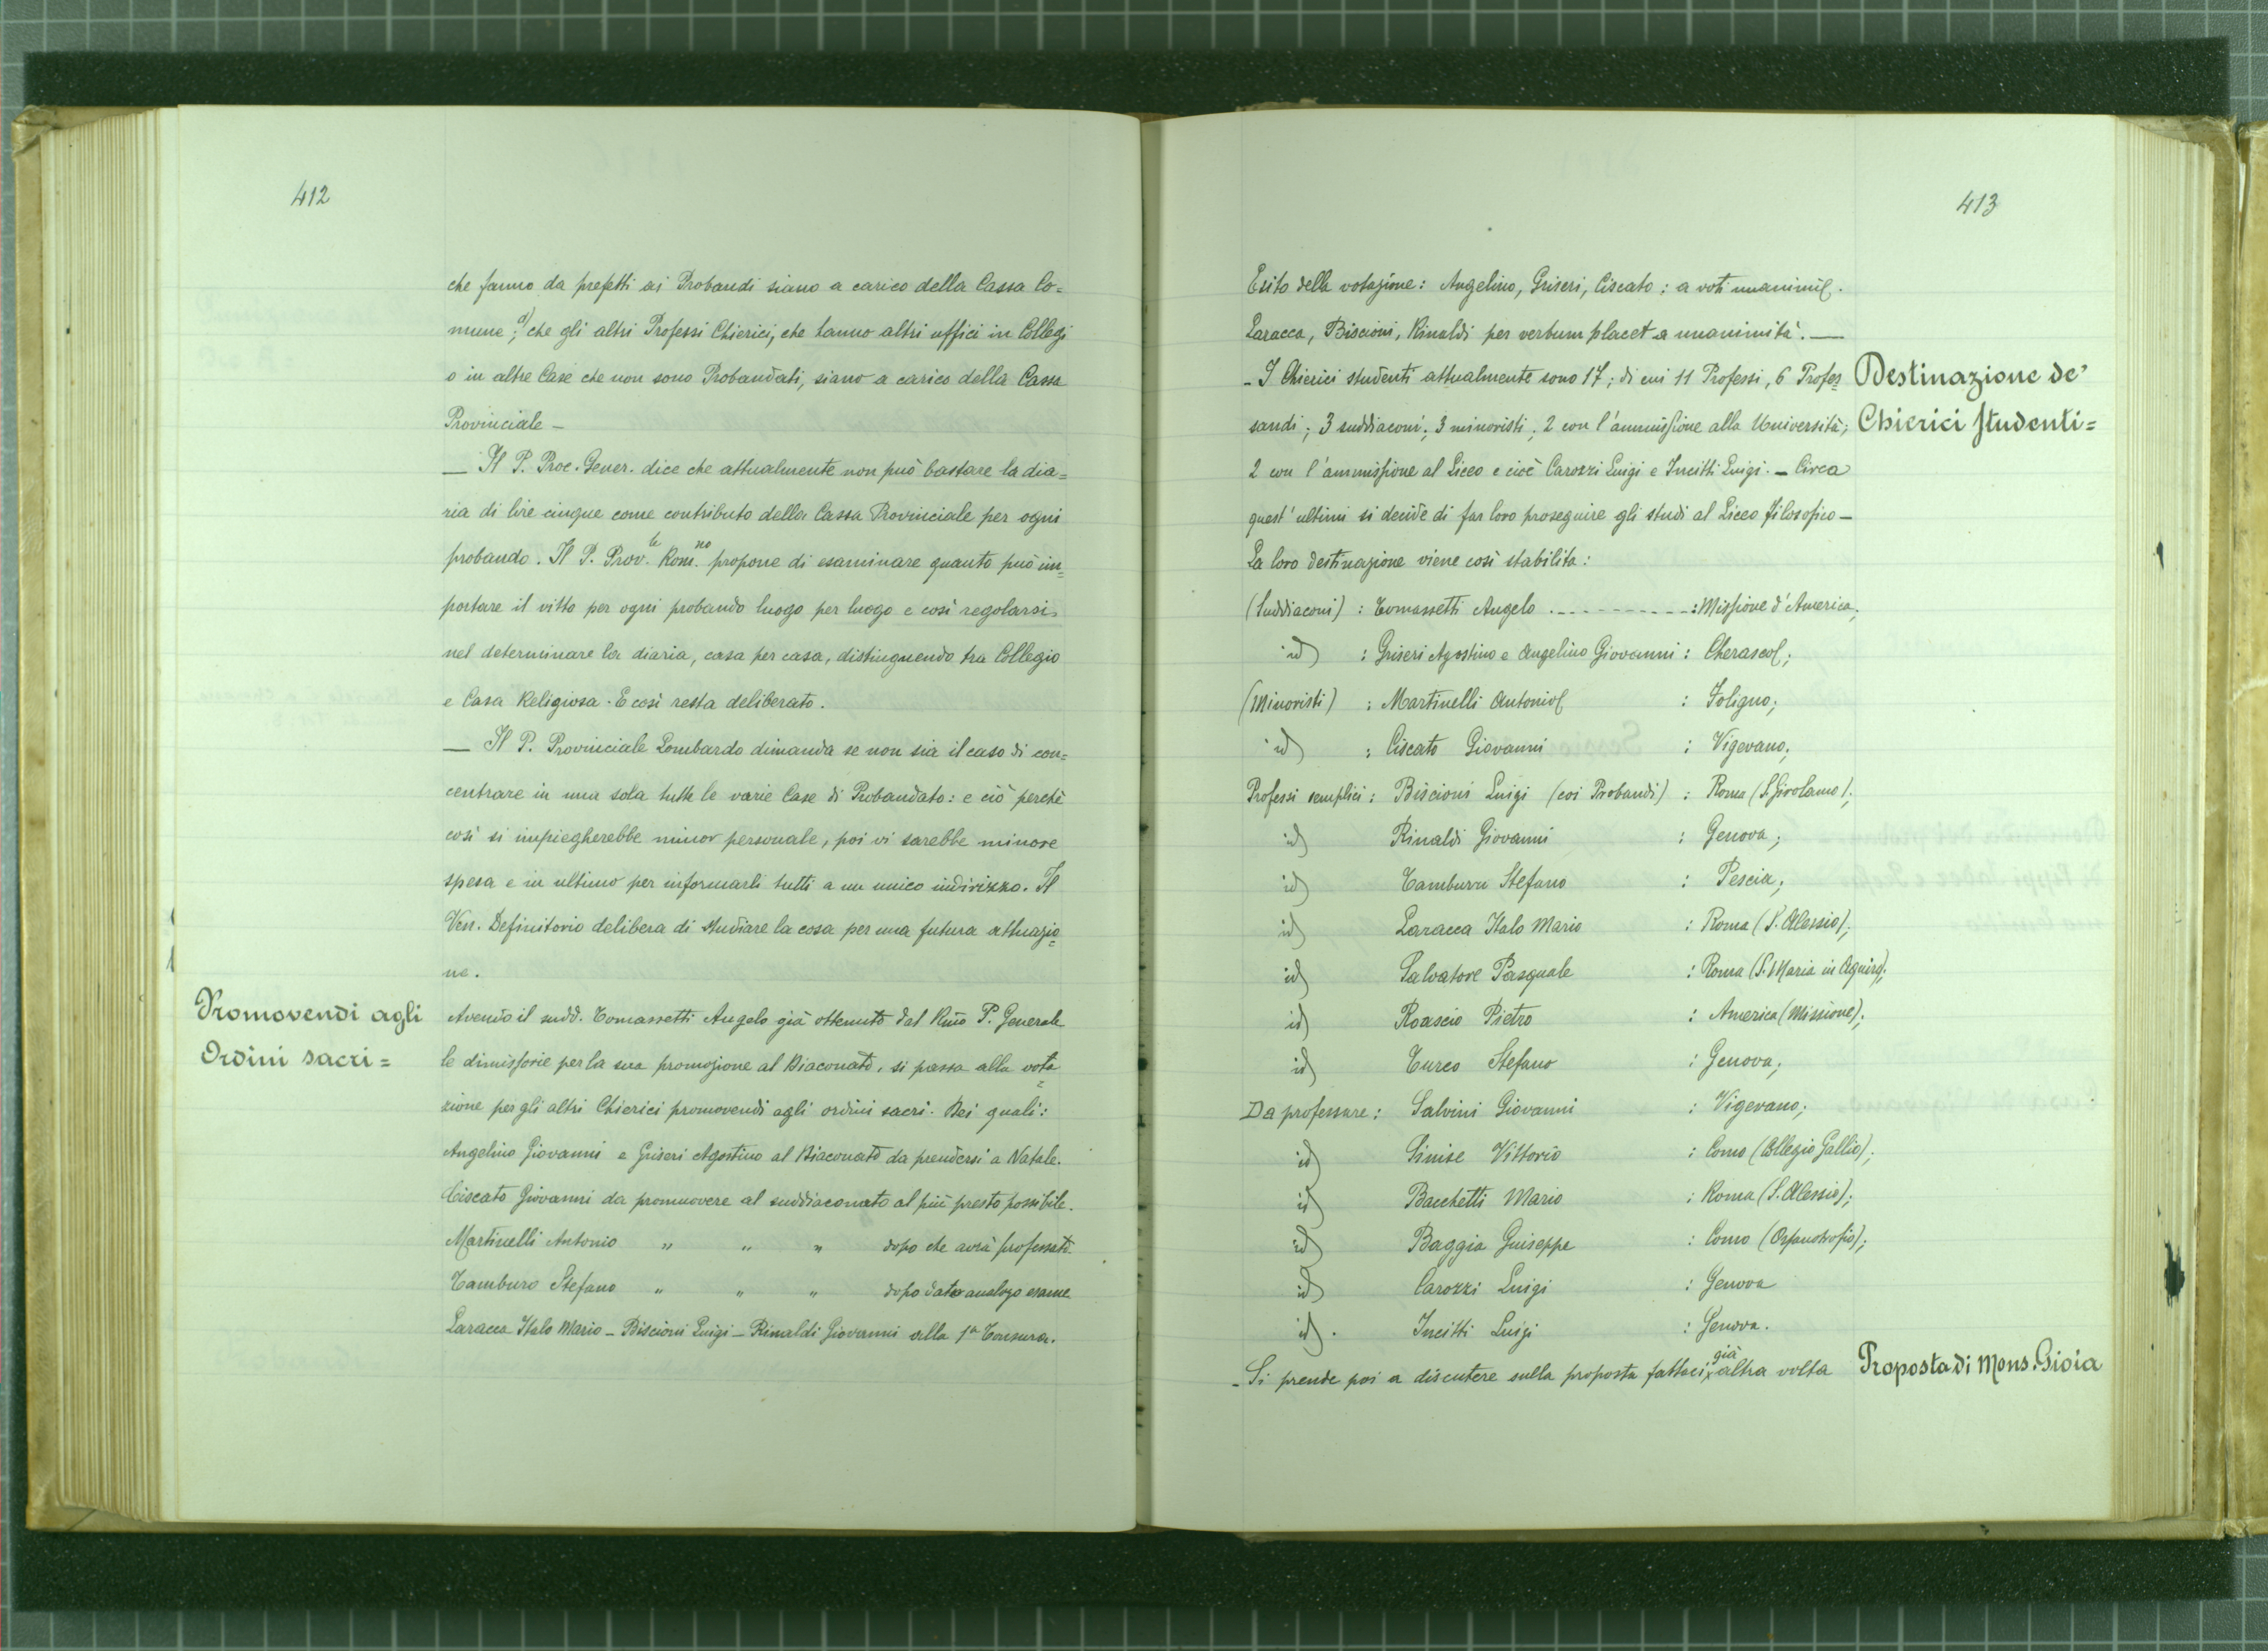 412
che fanno da prefetti ai Probandi siano a carico della Cassa Co=
mune; d) che gli altri Professi Chierici, che hanno altri uffici in Collegi
o in altre Case che non sono Probandati, siano a carico della Cassa
Provinciale -
— Il P. Proc. Gener. dice che attualmente non può bastare la dia=
ria di lire cinque come contributo della Cassa Provinciale per ogni
probando. Il P. Prov.le Rom.no propone di esaminare quanto può im=
portare il vitto per ogni probando luogo per luogo e così regolarsi
nel determinare la diaria, casa per casa, distinguendo tra Collegio
e Casa Religiosa. E così resta deliberato.
— Il P. Provinciale Lombardo dimanda se non sia il caso di con=
centrare in una sola tutte le varie Case di Probandato: e ciò perchè
così si impiegherebbe minor personale, poi vi sarebbe minore
spesa e in ultimo per informarli tutti a un unico indirizzo. Il
Ven. Definitorio delibera di studiare la cosa per una futura attuazio=
ne.
Promovendi agli
Ordini sacri =
Avendo il sudd. Tomassetti Angelo già ottenuto dal Rmo P. Generale
le dimissorie per la sua promozione al Diaconato, si passa alla vota=
zione per gli altri Chierici promovendi agli ordini sacri. Dei quali:
Angelino Giovanni e Griseri Agostino al Diaconato da prendersi a Natale.
Ciscato Giovanni da promuovere al suddiaconato al più presto possibile.
Martinelli Antonio " " " dopo che avrà professato.
Tamburo Stefano " " " dopo dato analogo esame
Laracca Italo Mario - Biscioni Luigi - Rinaldi Giovanni alla 1a Tonsura.
413
Esito della votazione: Angelino, Griseri, Ciscato: a voti unanimi.
Laracca, Biscioni, Rinaldi per verbum placet a unanimità. —
Destinazione de'
Chierici Studenti =
- I Chierici studenti attualmente sono 17; di cui 11 Professi, 6 Profes=
sandi; 3 suddiaconi; 3 minoristi; 2 con l'ammissione alla Università;
2 con l'ammissione al Liceo e cioè Carozzi Luigi e Incitti Luigi. - Circa
quest'ultimi si decide di far loro proseguire gli studi al Liceo filosofico -
La loro destinazione viene così stabilita:
(Suddiaconi) : Tomassetti Angelo . - - - - - - - - - - : Missione d'America;
id) : Griseri Agostino e Angelino Giovanni : Cherasco;
(Minoristi) : Martinelli Antonio : Foligno;
id) : Ciscato Giovanni : Vigevano;
Professi semplici : Biscioni Luigi (coi Probandi) : Roma (S. Girolamo);
id) Rinaldi Giovanni : Genova;
id) Tamburu Stefano : Pescia;
id) Laracca Italo Mario : Roma (S. Alessio);
id) Salvatore Pasquale : Roma (S. Maria in Aquiro);
id) Roascio Pietro : America (Missione);
id) Turco Stefano : Genova;
Da professare : Salvini Giovanni : Vigevano;
id) Sinise Vittorio : Como (Collegio Gallio);
id) Bacchetti Mario : Roma (S. Alessio);
id) Baggia Guiseppe : Como (Orfanotrofio);
id) Carozzi Luigi : Genova
id). Incitti Luigi : Genova.
Proposta di Mons. Gioia
- Si prende poi a discutere sulla proposta fattaci già altra volta